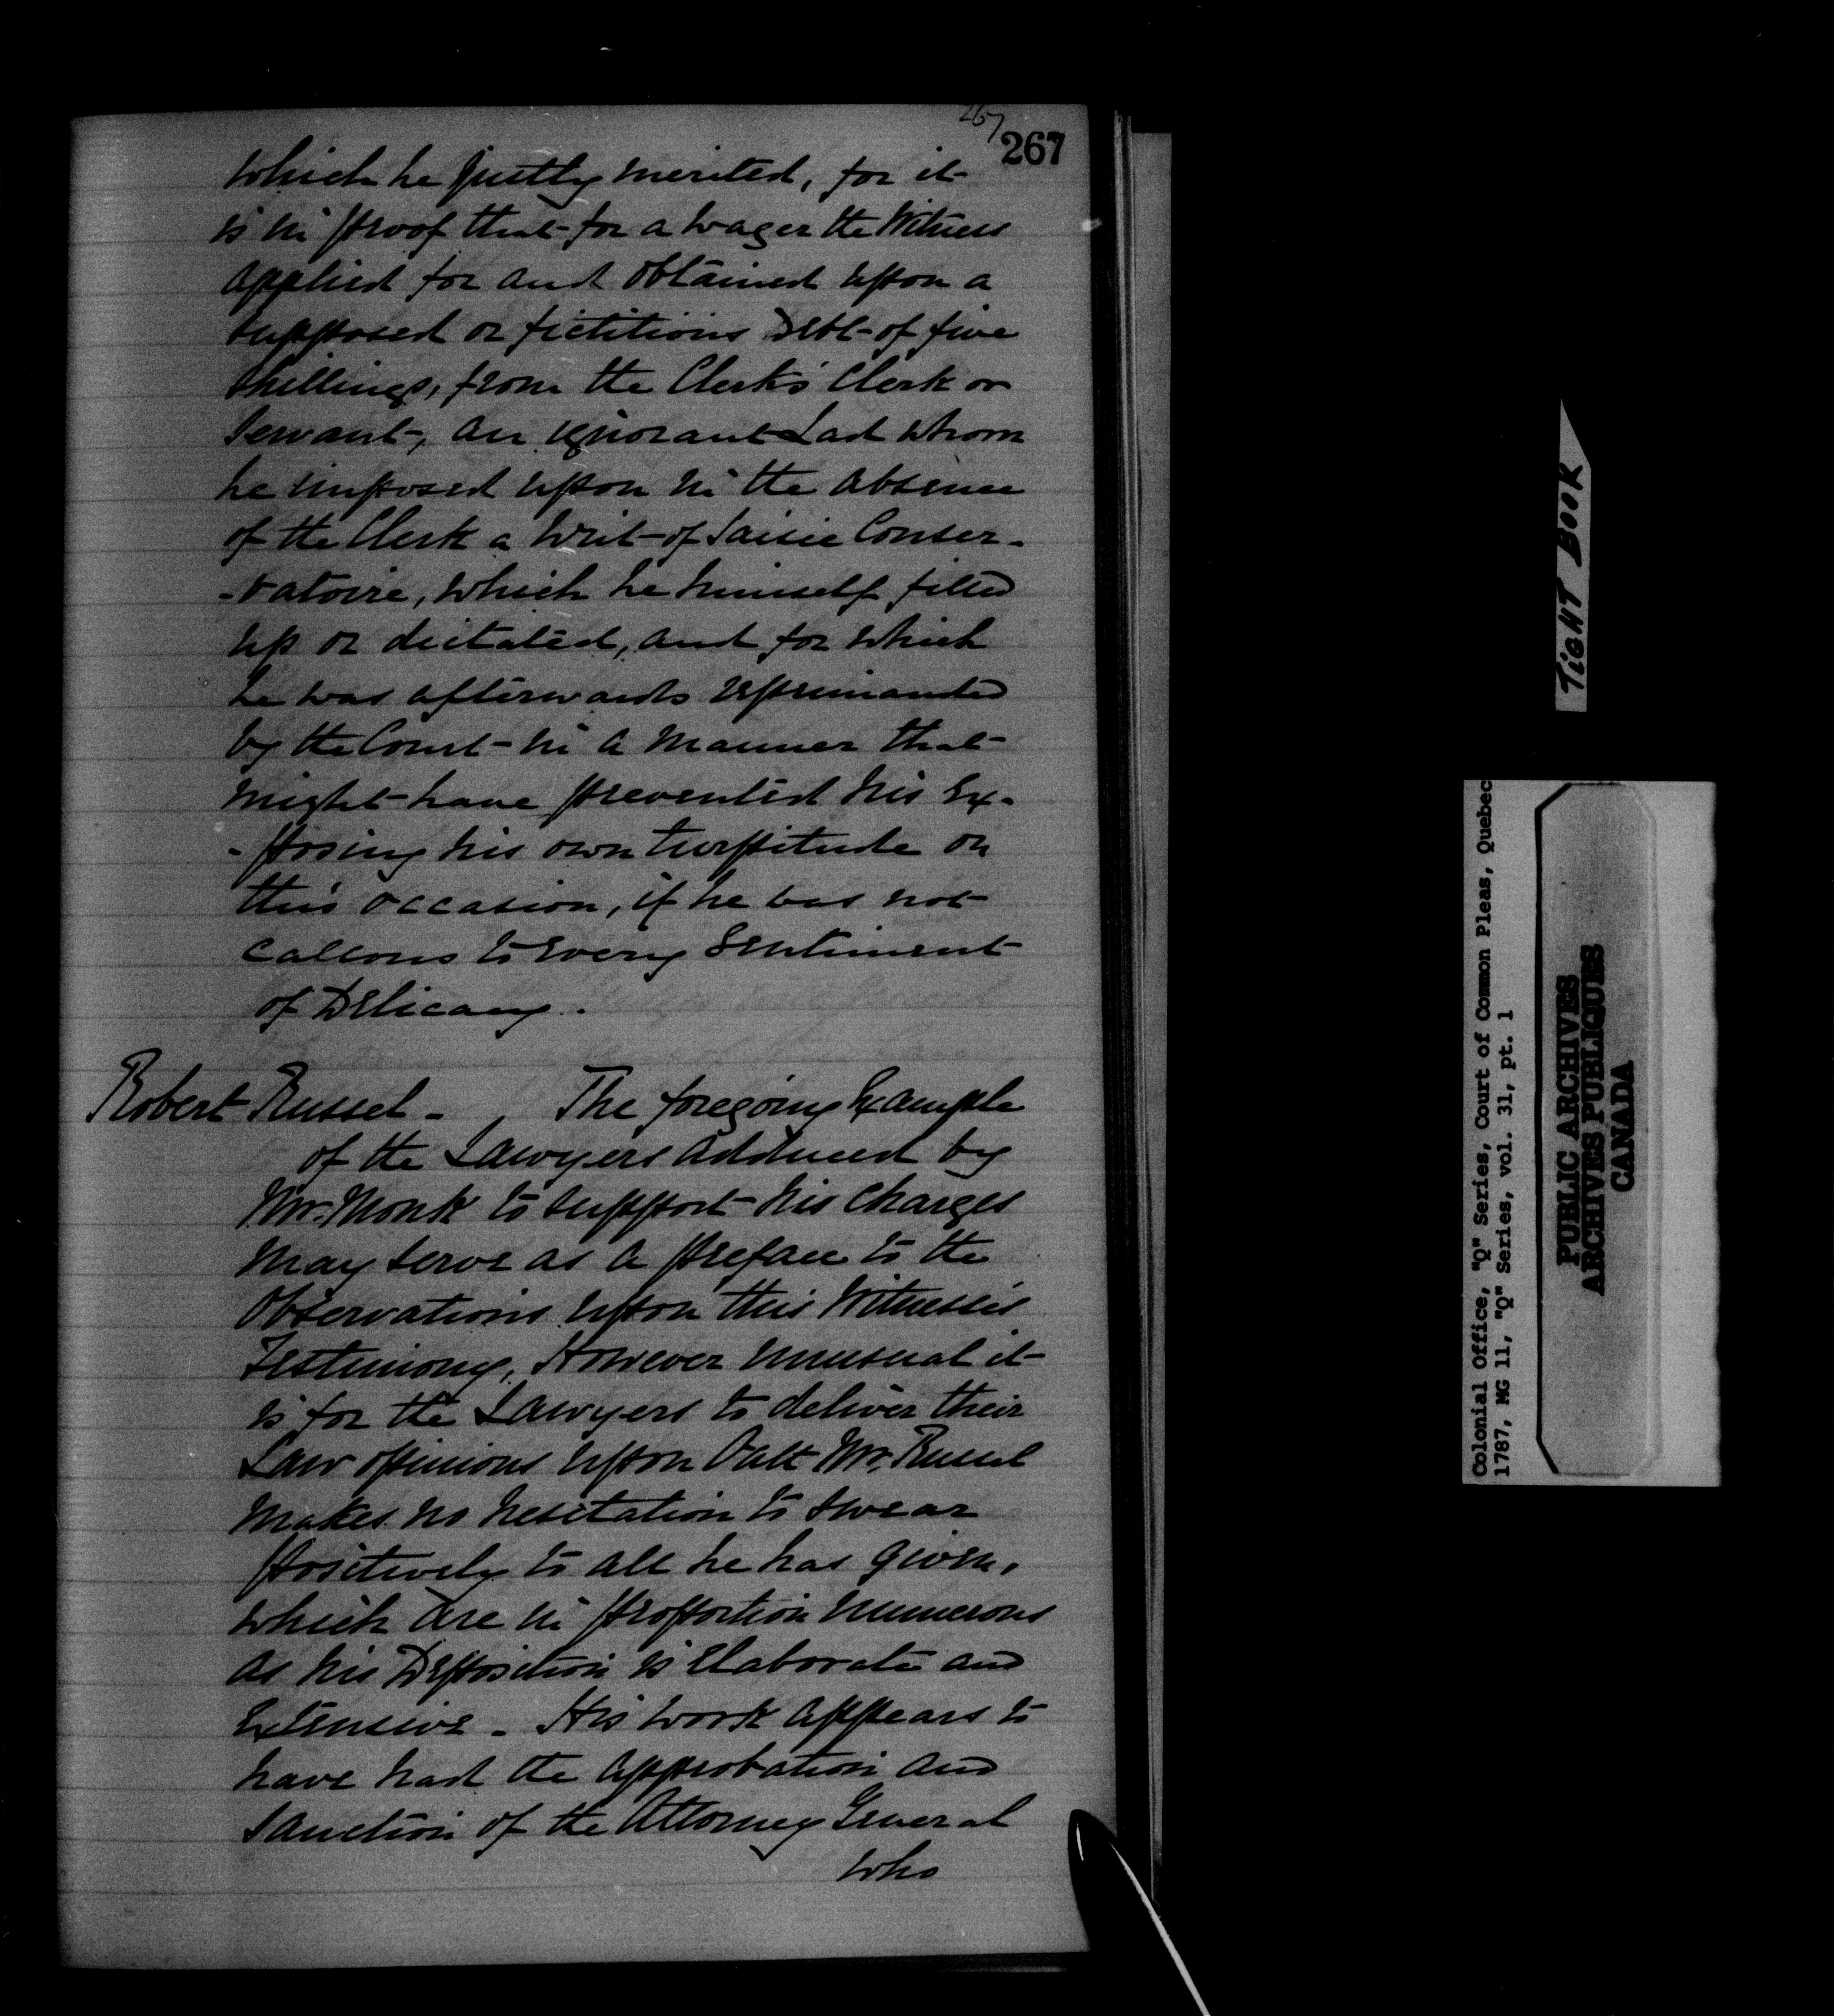 267
267
which he justly merited, for it
is in proof that for a wager the Witness
applied for and obtained upon a
supposed or fictitious Debt of five
shillings, from the Clerk's Clerk or
Servant, an ignorant Lad whom
he imposed upon in the absence
of the Clerk a Writ of Saisie Conser-
-vatoire, which he himself filled
up or dictated, and for which
he was afterwards reprimanded
by the Court in a manner that
might have prevented his Ex-
-posing his own turpitude on
this occasion, if he was not
callous to every Sentiment
of Delicacy.
Robert Russel - The foregoing Example
of the Lawyers adduced by
Mr. Monk to support his charges
may serve as a preface to the
Observations upon this Witness's
Testimony, However unusual it
is for the Lawyers to deliver their
Law opinions upon Oath Mr. Russel
makes no hesitation to swear
positively to all he has given,
which are in proportion numerous
as his Deposition is Elaborate and
Extensive - His work appears to
have had the approbation and
Sanction of the Attorney General
who
TIGHT BOOK
Colonial Office, "Q" Series, Court of Common Pleas, Quebec
1787, MG 11, "Q" Series, vol. 31, pt. 1
PUBLIC ARCHIVES
ARCHIVES PUBLIQUES
CANADA